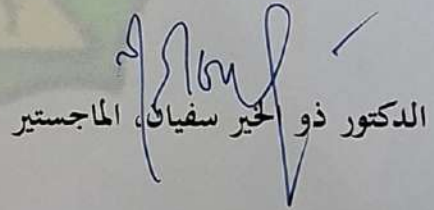 الدكتور ذو الخير سفيان، الماجستير